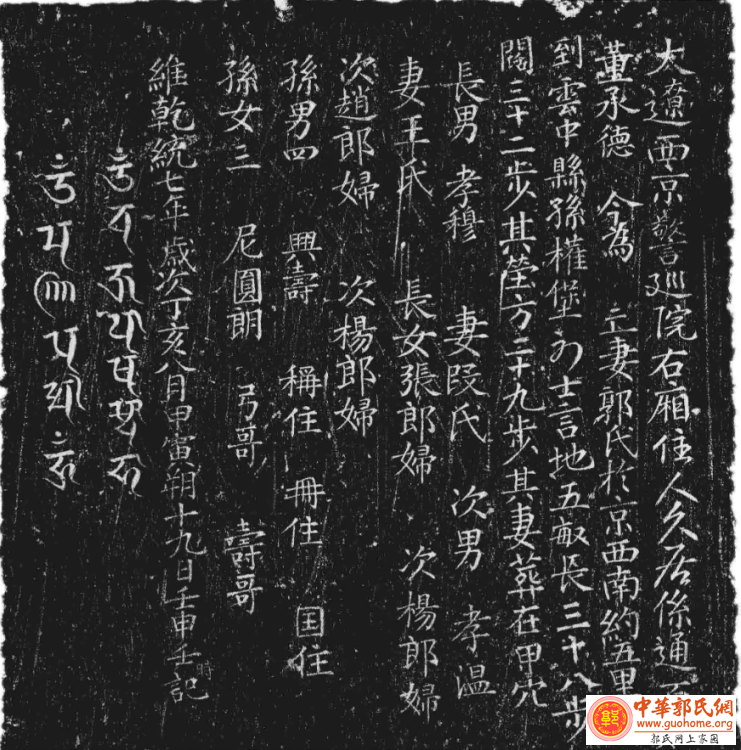 大遼西京警巡院右廂住人久居係通
董承德 今為 亡妻郭氏於京西南約五里
到雲中縣孫權堡士言地五畝長三十八步
闊三十二步其塋方二十九步其妻葬在甲穴
長男 孝穆 妻段氏 次男 孝溫
妻王氏 長女張郎婦 次楊郎婦
次趙郎婦 次楊郎婦
孫男四 興壽 稱住 冊住 囯住
孫女三 尼圓朗 弓哥 壽哥
維乾統七年歲次丁亥八月甲寅朔十九日壬申壬記
中華郭氏網
www.guohome.org
郭氏网上家园